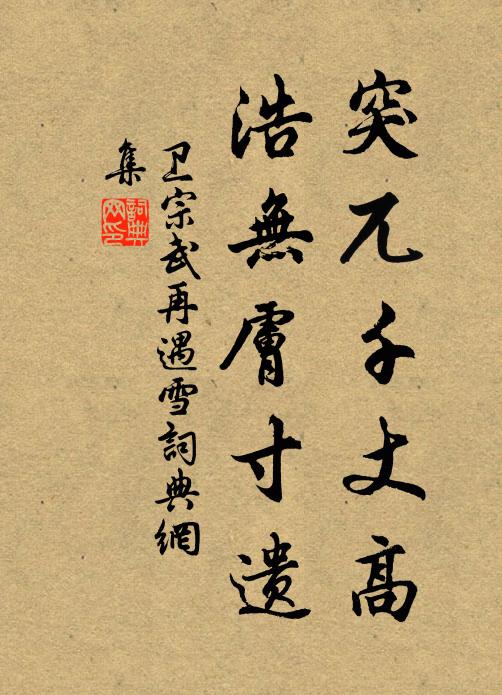 突兀千丈高
浩無膚寸遺
卫宗武再遇雪詞典網
集
詞典网印